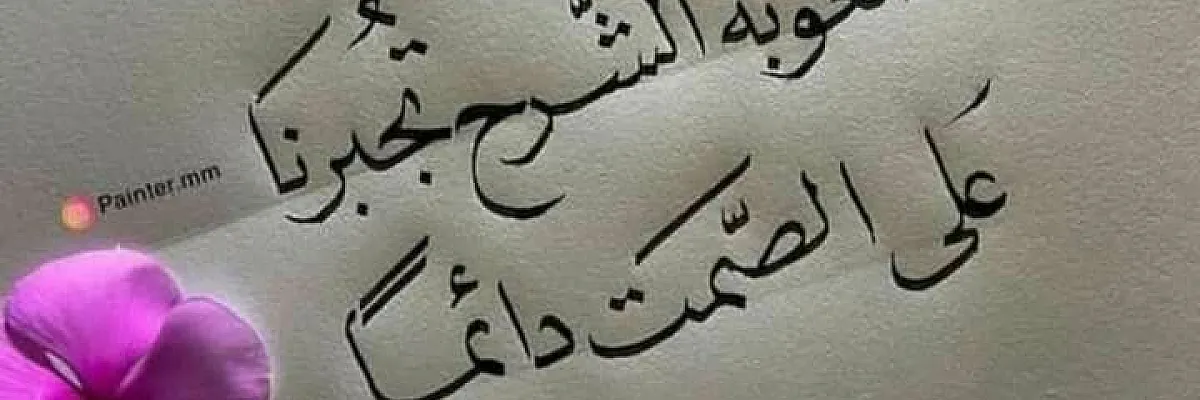 الشّرح تُجبرنا
عَلى الصّمت دائماً
Painter.mm